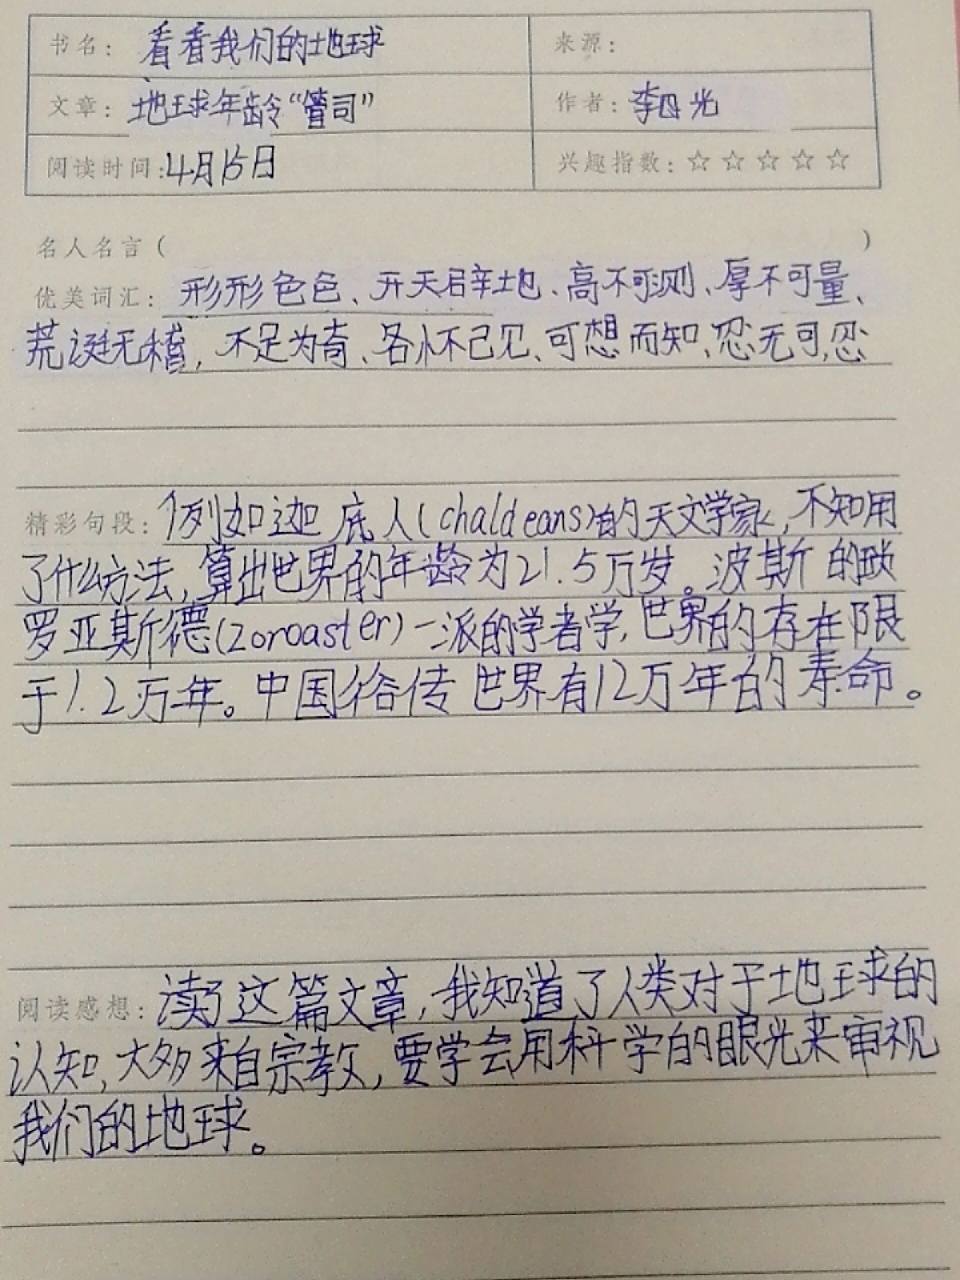 书名： 看看我们的地球 来源：
文章： 地球年龄“管司” 作者： 李四光
阅读时间：4月15日 兴趣指数：☆☆☆☆☆
名人名言（ ）
优美词汇： 形形色色、开天辟地、高不可测、厚不可量、
荒诞无稽，不足为奇、各怀己见、可想而知、忍无可忍
精彩句段： 例如迦底人(chaldeans)的天文学家，不知用
了什么方法，算出世界的年龄为21.5万岁。波斯的琐
罗亚斯德(Zoroaster)一派的学者学，世界的存在限
于1.2万年。中国俗传世界有12万年的寿命。
阅读感想： 读了这篇文章，我知道了人类对于地球的
认知，大多来自宗教，要学会用科学的眼光来审视
我们的地球。